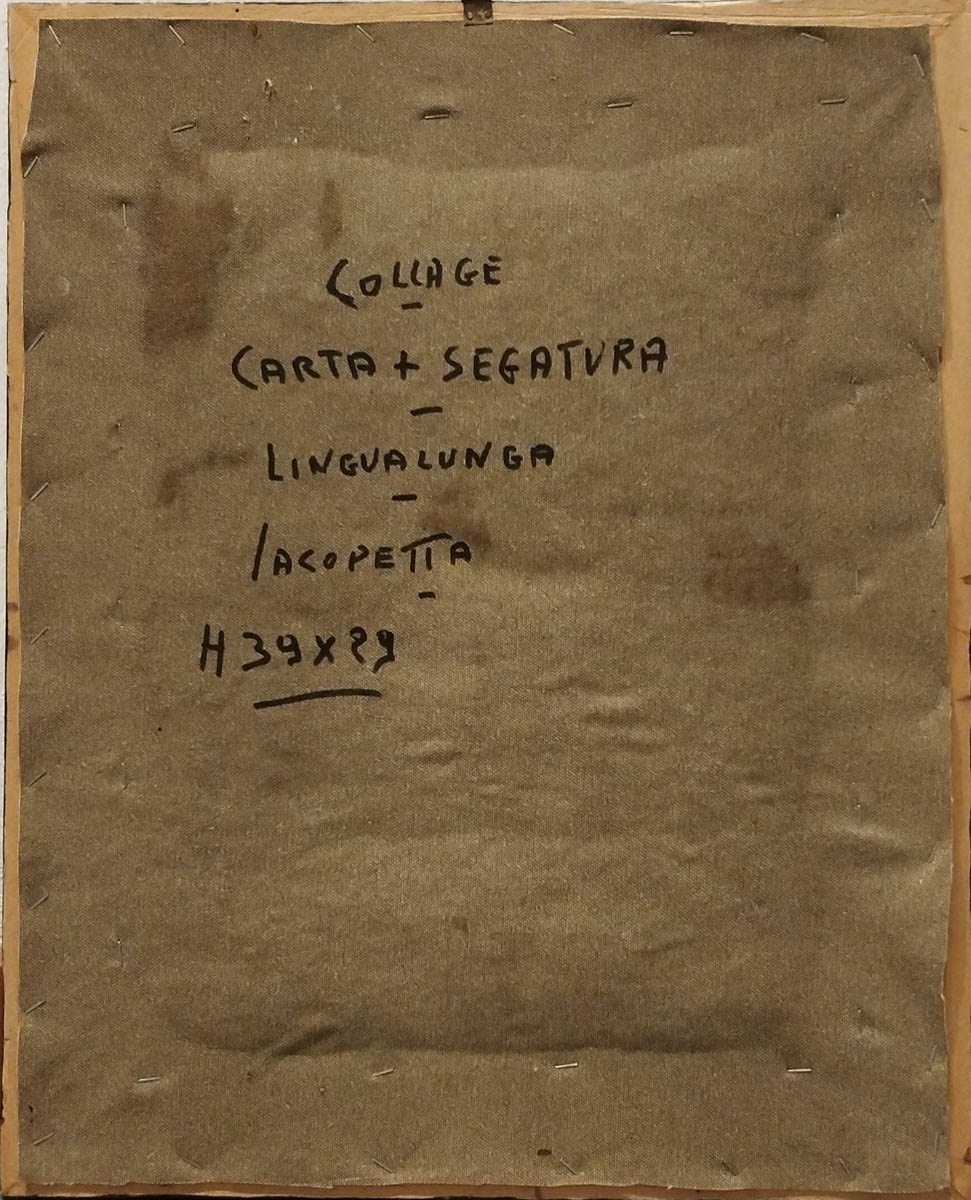 COLLAGE
-
CARTA + SEGATURA
-
LINGUALUNGA
-
IACOPETTA
-
H 39x29